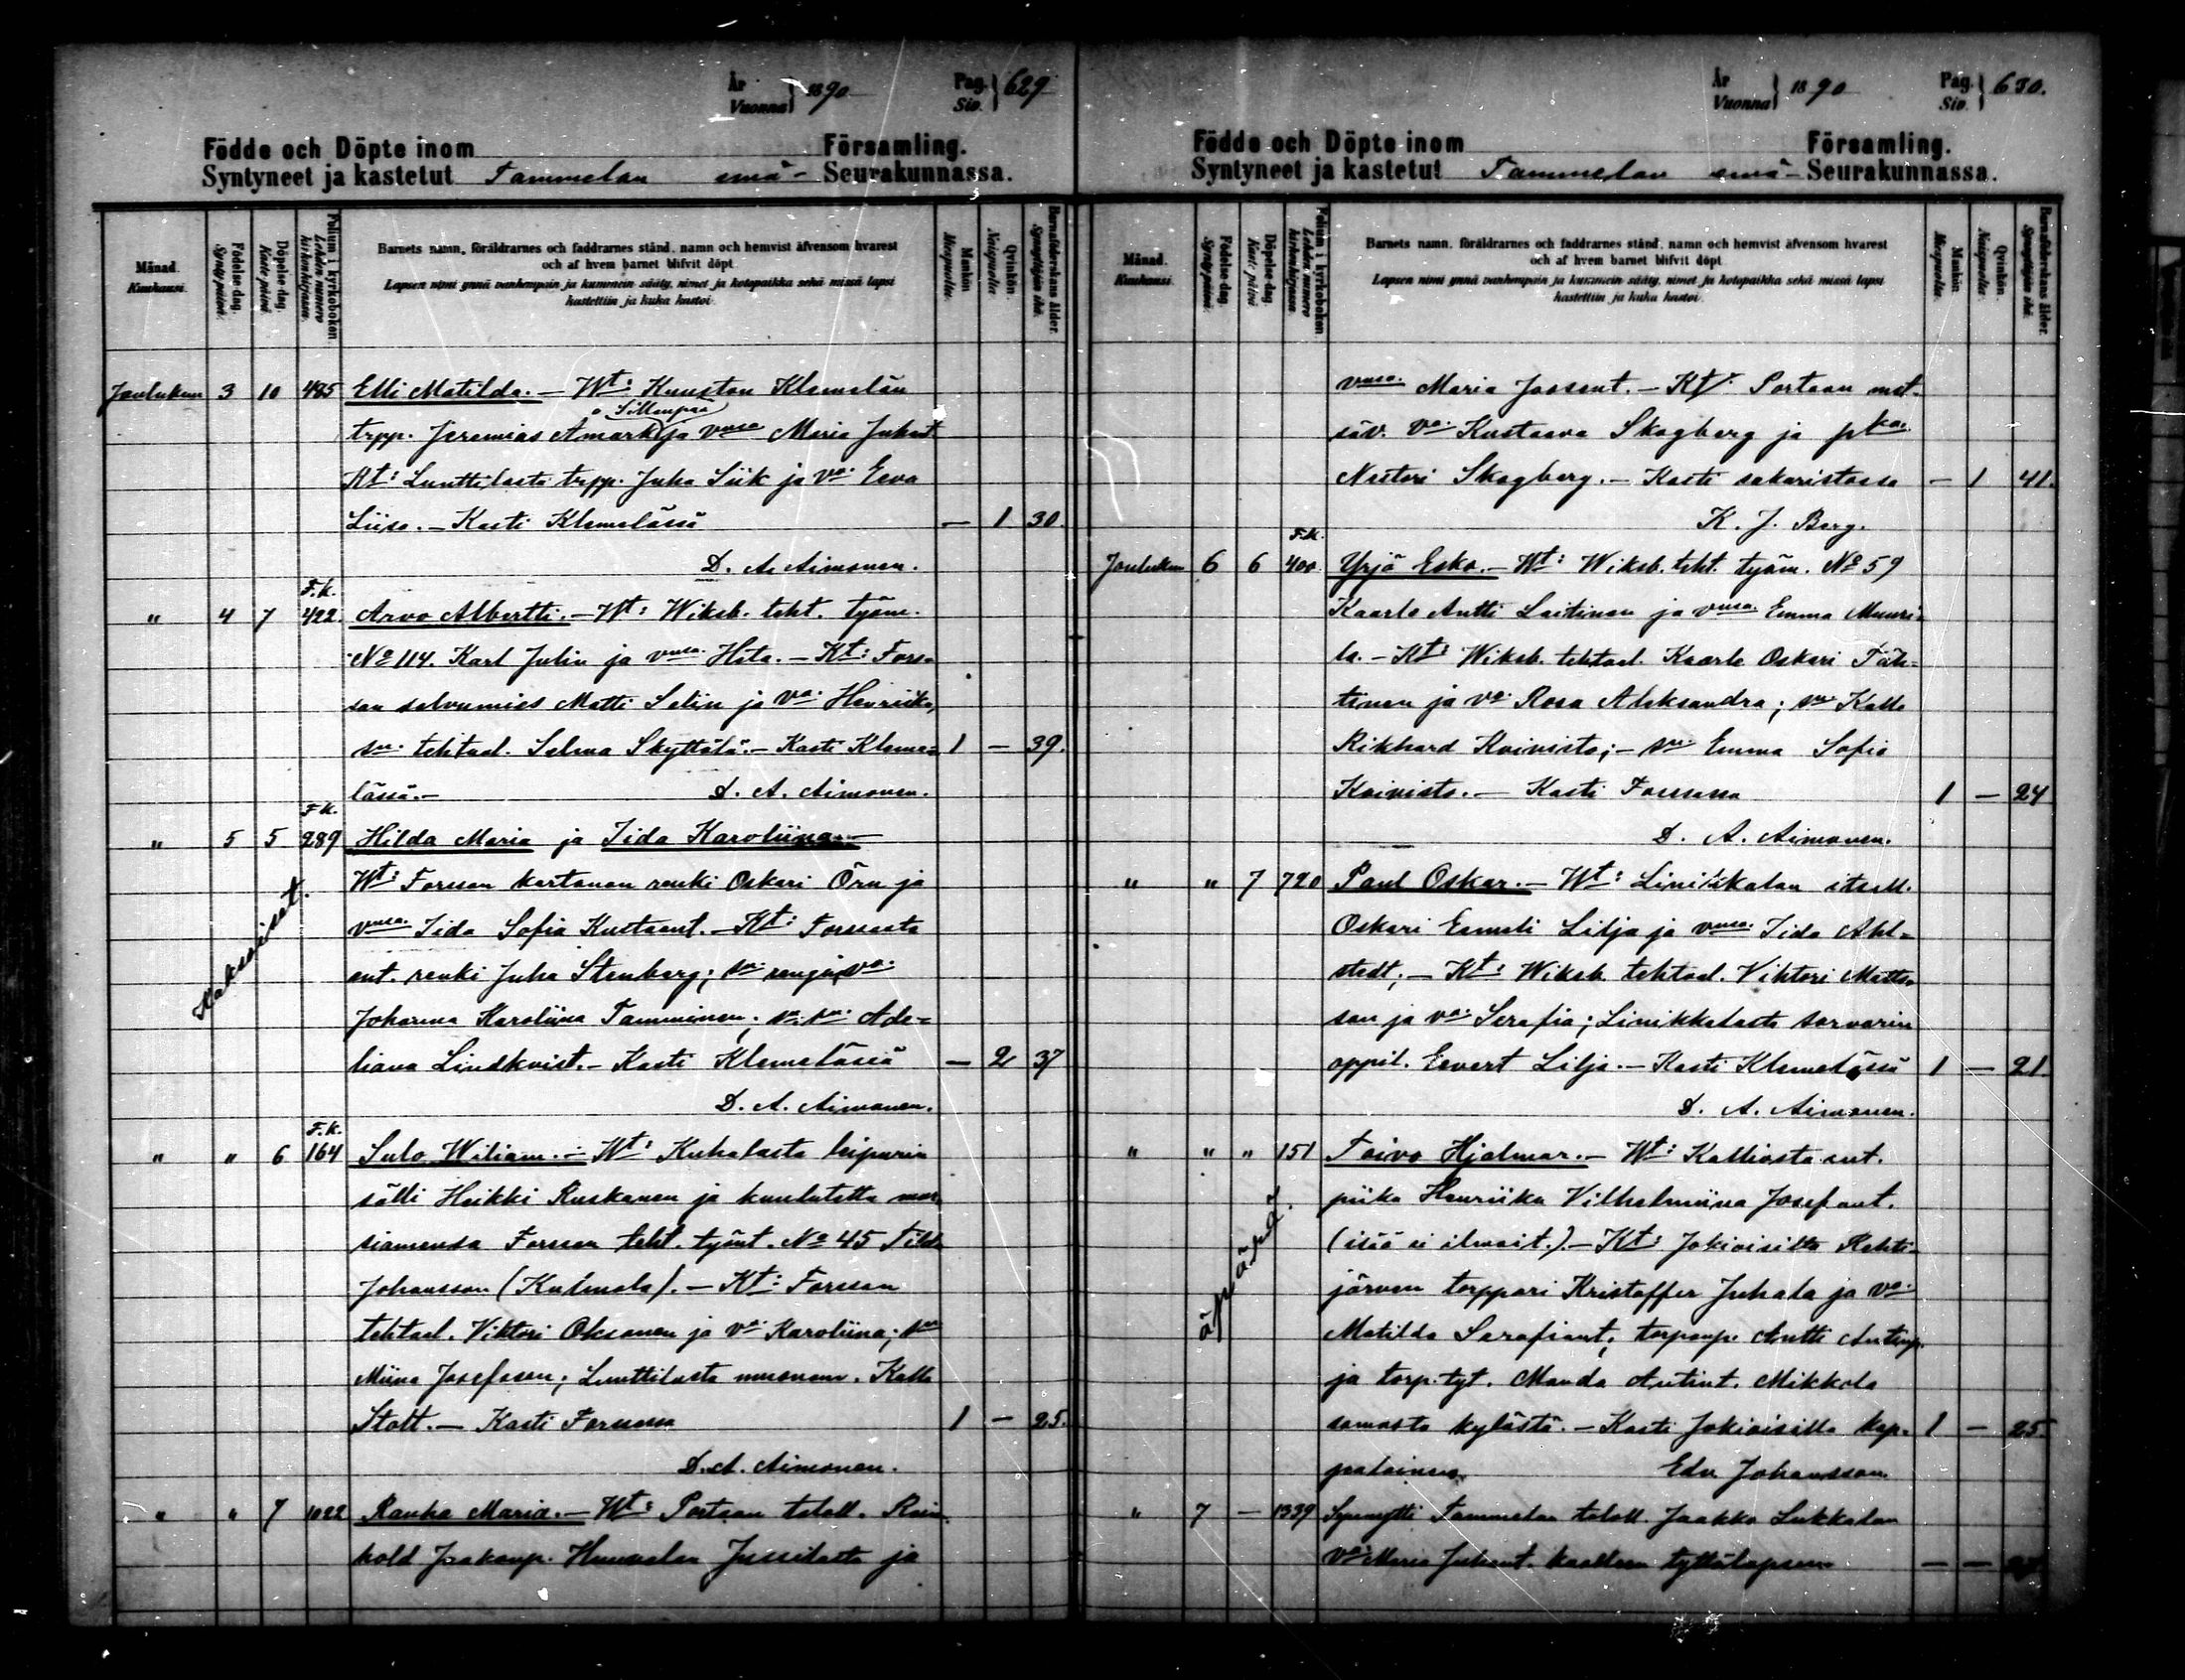 År
Vuonna } 1890
Pag.
Siv. } 629
Födde och Döpte inom Församling.
Syntyneet ja kastetut Tammelan emä- Seurakunnassa.
Månad. Kuukausi.
Födelse-dag. Syntypäivä.
Döpelse-dag. Kastepäivä
Folium i kyrkoboken Lehden numero kirkonkirjassa.
Barnets namn, föräldrarnes och faddrarnes stånd, namn och hemvist äfvensom hvarest
och af hvem barnet blifvit döpt.
Lapsen nimi ynnä vanhempain ja kummein sääty, nimet ja kotopaikka sekä missä lapsi
kastettiin ja kuka kastoi.
Mankön. Miespuolia.
Qvinkön. Naispuolia
Barnföderskans ålder. Synnyttäjän ikä.
Joulukuu 3 10 485 Elli Matilda. – Wt: Kuuston Klemelän
Sillanpää
trpp. Jeremias Amark ja vmsa Maria Juhant.
Kt: Lunttilasta trpp. Juha Siik ja va. Eeva
Liisa. – Kasti Klemelässä — 1 30.
D. A. Aimonen.
F.K.
" 4 7 422. Arvo Albertti. – Wt: Wiksb. teht. työm.
No 114. Karl Julin ja vmsa. Hita. – Kt: Fors-
san salvumies Matti Selin ja va. Henriika,
sm. tehtaal. Selma Skyttälä. – Kasti Kleme- 1 — 39.
lässä. – D. A. Aimonen.
F.K.
" 5 5 289 Hilda Maria ja Iida Karoliina. –
Kaksoiset.
Wt: Forssan kartanon renki Oskari Örn ja
vmsa. Iida Sofia Kustaant. – Kt: Forssasta
ent. renki Juha Stenberg; sm. rengin va.
Johanna Karoliina Tamminen; sm. sm. Ade-
liana Lindkvist. – Kasti Klemelässä — 2 37
D. A. Aimonen.
F.K.
" " 6 164 Sulo Wiliam. – Wt: Kuhalasta leipurin
sälli Heikki Ruskanen ja kuulutettu mor-
siamensa Forssan teht. työnt. No 45 Tilda
Johansson (Kulmala). – Kt: Forssan
tehtaal. Viktori Oksanen ja va. Karoliina; sm
Miina Josefsson; Lunttilasta Kalle
Stott. – Kasti Forssassa 1 — 25.
D. A. Aimonen.
" " 7 1022 Rauha Maria. – Wt: Portaan taloll. Rein-
hold Jaakonp. Hunnalan Jussilasta ja
År
Vuonna } 1890
Pag.
Siv. } 630.
Födde och Döpte inom Församling.
Syntyneet ja kastetut Tammelan emä- Seurakunnassa.
Månad. Kuukausi.
Födelse-dag. Syntypäivä.
Döpelse-dag. Kastepäivä
Folium i kyrkoboken Lehden numero kirkonkirjassa.
Barnets namn, föräldrarnes och faddrarnes stånd, namn och hemvist äfvensom hvarest
och af hvem barnet blifvit döpt.
Lapsen nimi ynnä vanhempain ja kummein sääty, nimet ja kotopaikka sekä missä lapsi
kastettiin ja kuka kastoi.
Mankön. Miespuolia.
Qvinkön. Naispuolia.
Barnföderskans ålder. Synnyttäjän ikä.
vmsa. Maria Joosent. – Kt: Portaan met-
säv. va. Kustaava Skogberg ja pka.
Nestori Skogberg. – Kasti sakaristossa — 1 41.
K. J. Berg.
F.K.
Joulukuu 6 6 400. Yrjö Esko. – Wt: Wiksb. teht. työm. No 59
Kaarlo Antti Laitinen ja vmsa. Emma Muuri-
la. – Kt: Wiksb. tehtaal. Kaarle Oskari Täh-
tinen ja va Rosa Aleksandra; sm. Kalle
Rikhard Koivisto; – sm. Emma Sofia
Koivisto. – Kasti Forssassa 1 — 24
D. A. Aimonen.
" " 7 720 Paul Oskar. – Wt: Linikkalan itsell.
Oskari Eemeli Lilja ja vmsa. Iida Ahl-
stedt; – Kt: Wiksb. tehtaal. Vihtori Matts-
son ja va. Serafia; Linikkalasta sorvarin
oppil. Eevert Lilja. – Kasti Klemelässä 1 — 21
D. A. Aimonen.
" " " 151 Toivo Hjalmar. – Wt: Kalliosta ent.
äpärä.
piika Henriika Vilhelmiina Josefant.
(isää ei ilmoit.). – Kt: Jokioisilta Rehti-
järven torppari Kristoffer Juhala ja va.
Matilda Serafiant; torpanp. Antti Antinp.
ja torp. tyt. Manda Antint. Mikkola
samasta kylästä. – Kasti Jokioisilla kap- 1 — 25
palainen Edv. Johansson.
" 7 — 1339 Synnytti Tammelan taloll. Jaakko Sukkalan
va. Maria Juhant. kuolleen tyttölapsen — —